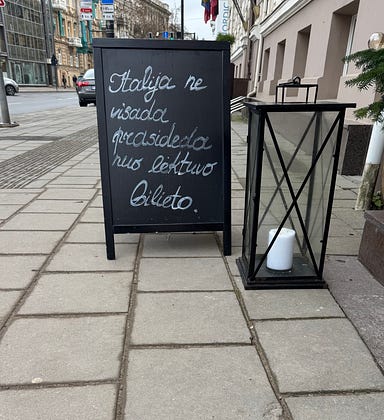 Italija ne
visada
prasideda
nuo lėktuvo
bilieto.